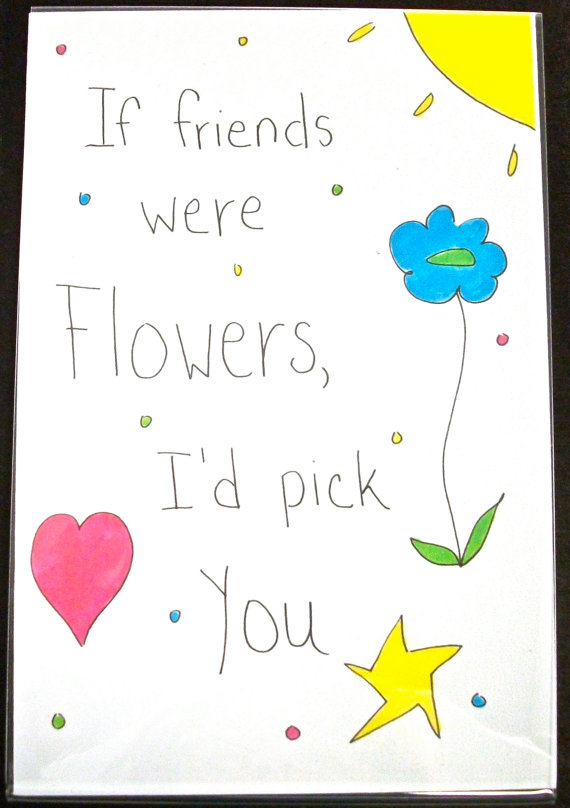 If friends
were
Flowers,
I'd pick
You